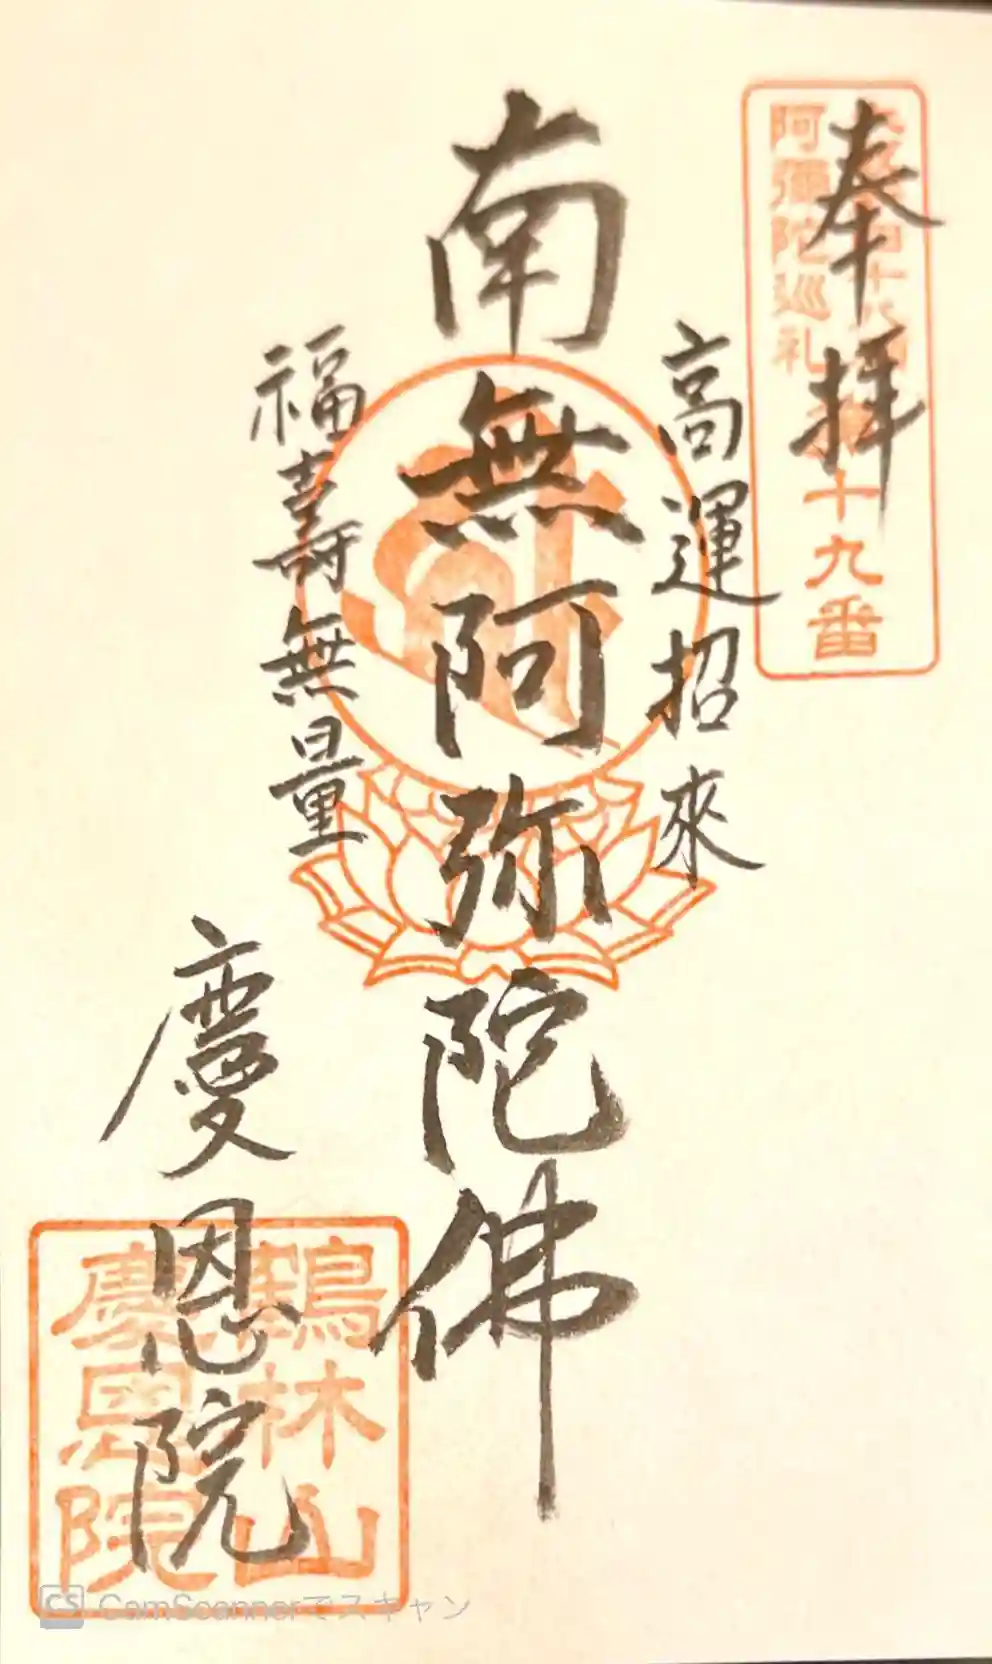 奉拝
阿彌陀巡礼
十九番
高運招來
南無阿弥陀佛
福壽無量
慶恩院
鶴林山
慶恩院
CS CamScannerでスキャン